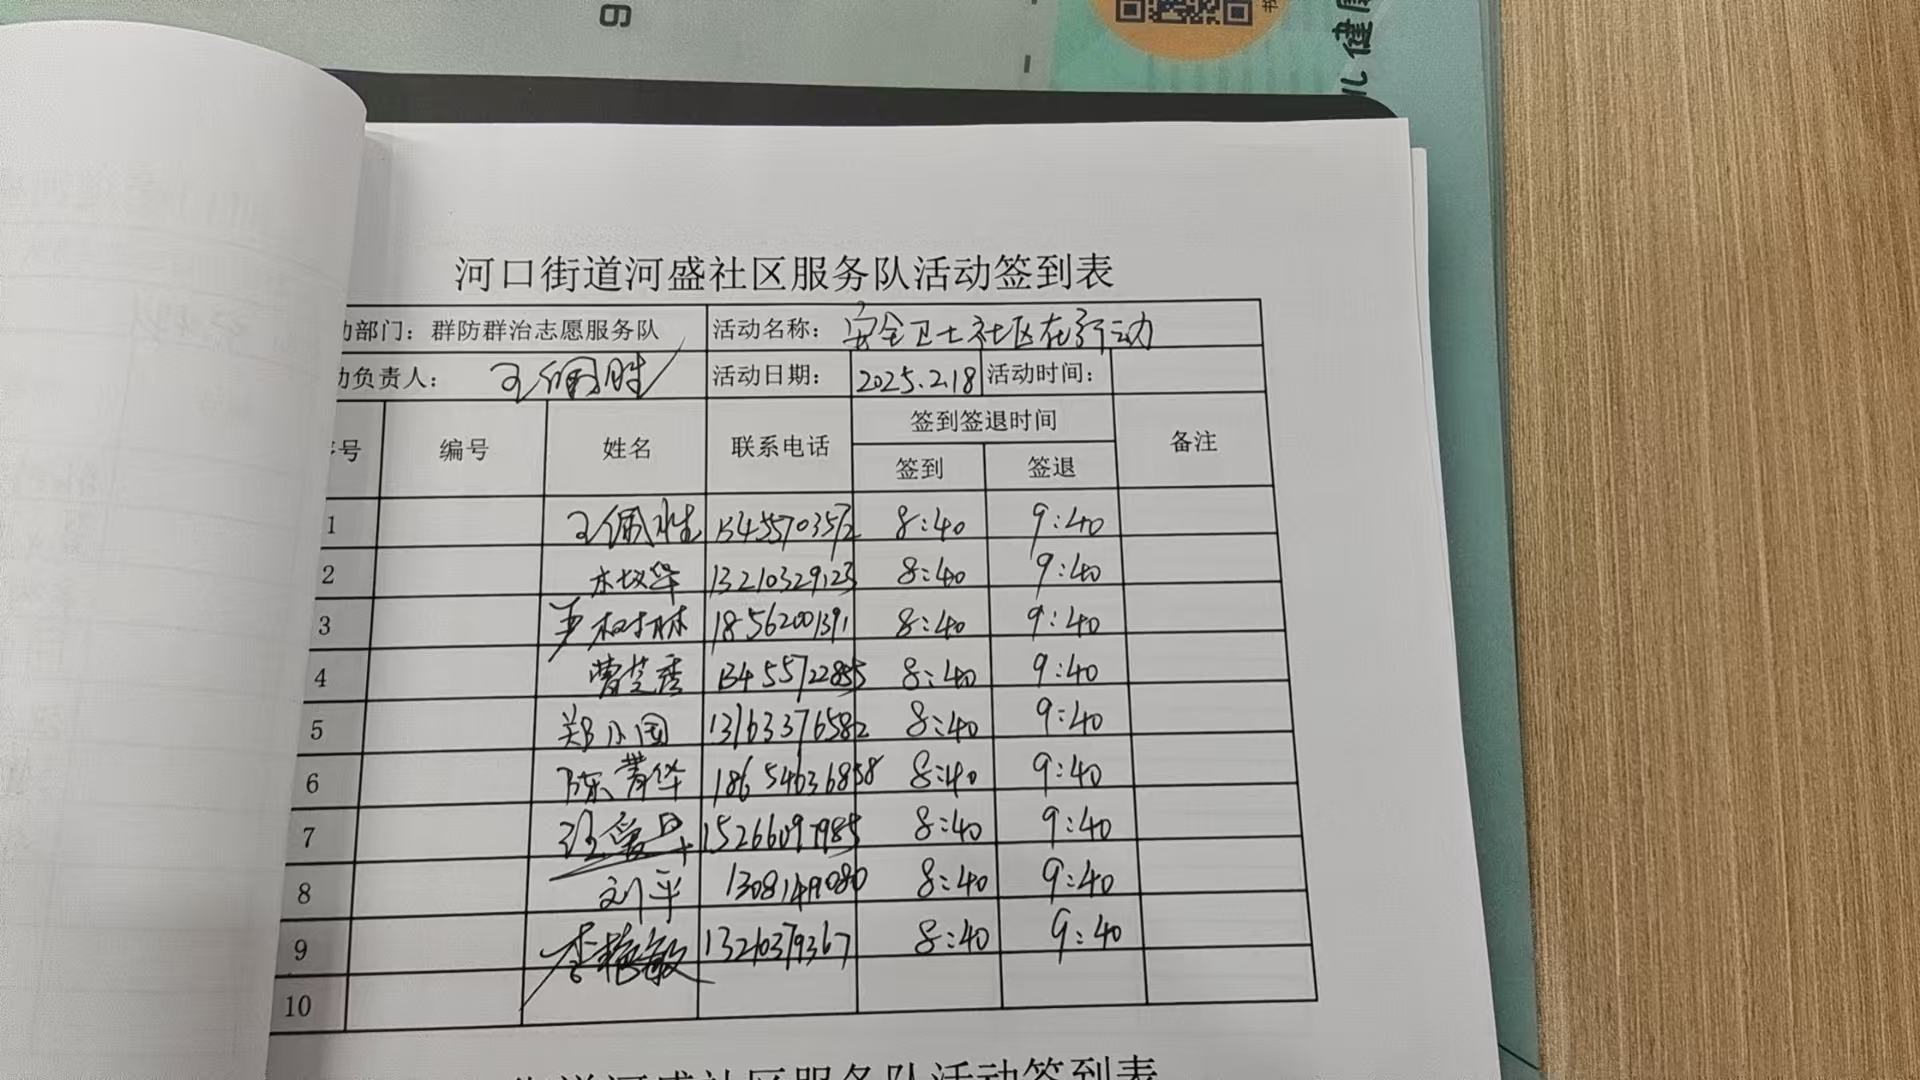 9
健康
河口街道河盛社区服务队活动签到表
动部门：群防群治志愿服务队 活动名称：安全卫士社区在行动
动负责人：王佩胜 活动日期：2025.2.18 活动时间：
序号 编号 姓名 联系电话 签到签退时间 备注
签到 签退
1 王佩胜 13455703572 8:40 9:40
2 13210329123 8:40 9:40
3 严树林 18562001391 8:40 9:40
4 曹芝秀 13455722855 8:40 9:40
5 郑小国 13163376582 8:40 9:40
6 陈菁华 18654636858 8:40 9:40
7 15266097985 8:40 9:40
8 刘平 8:40 9:40
9 李艳敏 8:40 9:40
10
街道河盛社区服务队活动签到表